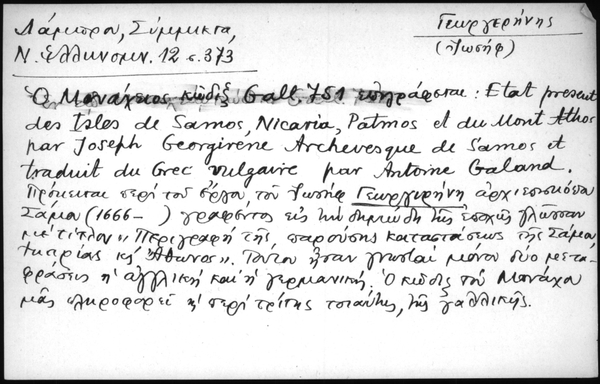 Λάμπρου, Σύμμικτα,
Ν. Ελληνομν. 12 σ. 373
Γεωργερήνης
(Ιωσήφ)
Ὁ Μονάχειος κώδιξ Gall. 751 επιγράφεται: Etat present
des Isles de Samos, Nicaria, Patmos et du Mont Athos
par Joseph Georgirene Archevesque de Samos et
traduit du Grec vulgaire par Antoine Galand.
Πρόκειται περί του έργου του Ιωσήφ Γεωργιρήνη αρχιεπισκόπου
Σάμου (1666- ) γραφέντος εις την δημώδη της εποχής γλώσσαν
με τίτλον "Περιγραφή της παρούσης καταστάσεως της Σάμου,
Ικαρίας κς Άθωνος". Τούτου ήσαν γνωσταί μόνον δύο μετα-
φράσεις η αγγλική και η γερμανική. Ο κώδιξ του Μονάχου
μας πληροφορεί κ περί τρίτης τοιαύτης, της γαλλικής.